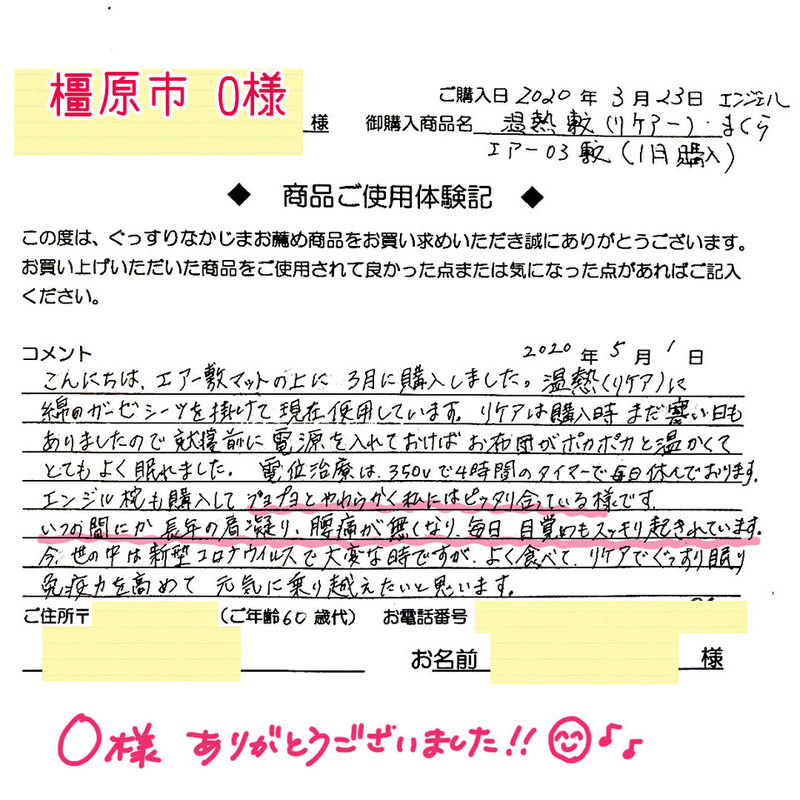 橿原市 O様
様
ご購入日 2020 年 3 月 23日 エンジェル
御購入商品名 温熱敷(リケアー)・まくら
エアー03敷(1月購入)
◆ 商品ご使用体験記 ◆
この度は、ぐっすりなかじまお薦め商品をお買い求めいただき誠にありがとうございます。
お買い上げいただいた商品をご使用されて良かった点または気になった点があればご記入
ください。
コメント 2020 年 5 月 1 日
こんにちは、エアー敷マットの上に 3月に購入しました。温熱(リケア)に
綿のガーゼシーツを掛けて現在使用しています。リケアは購入時まだ寒い日も
ありましたので就寝前に電源を入れておけばお布団がポカポカと温かくて
とてもよく眠れました。電位治療は、350Vで4時間のタイマーで毎日休んでおります。
エンジル枕も購入してプヨプヨとやわらかく私にはピッタリ合っている様です。
いつの間にか長年の肩凝り、腰痛が無くなり、毎日 目覚めもスッキリ起きれています。
今、世の中は新型コロナウイルスで大変な時ですが、よく食べて、リケアでぐっすり眠り
免疫力を高めて 元気に乗り越えたいと思います。
ご住所〒 (ご年齢60歳代) お電話番号
お名前 様
O様 ありがとうございました!!